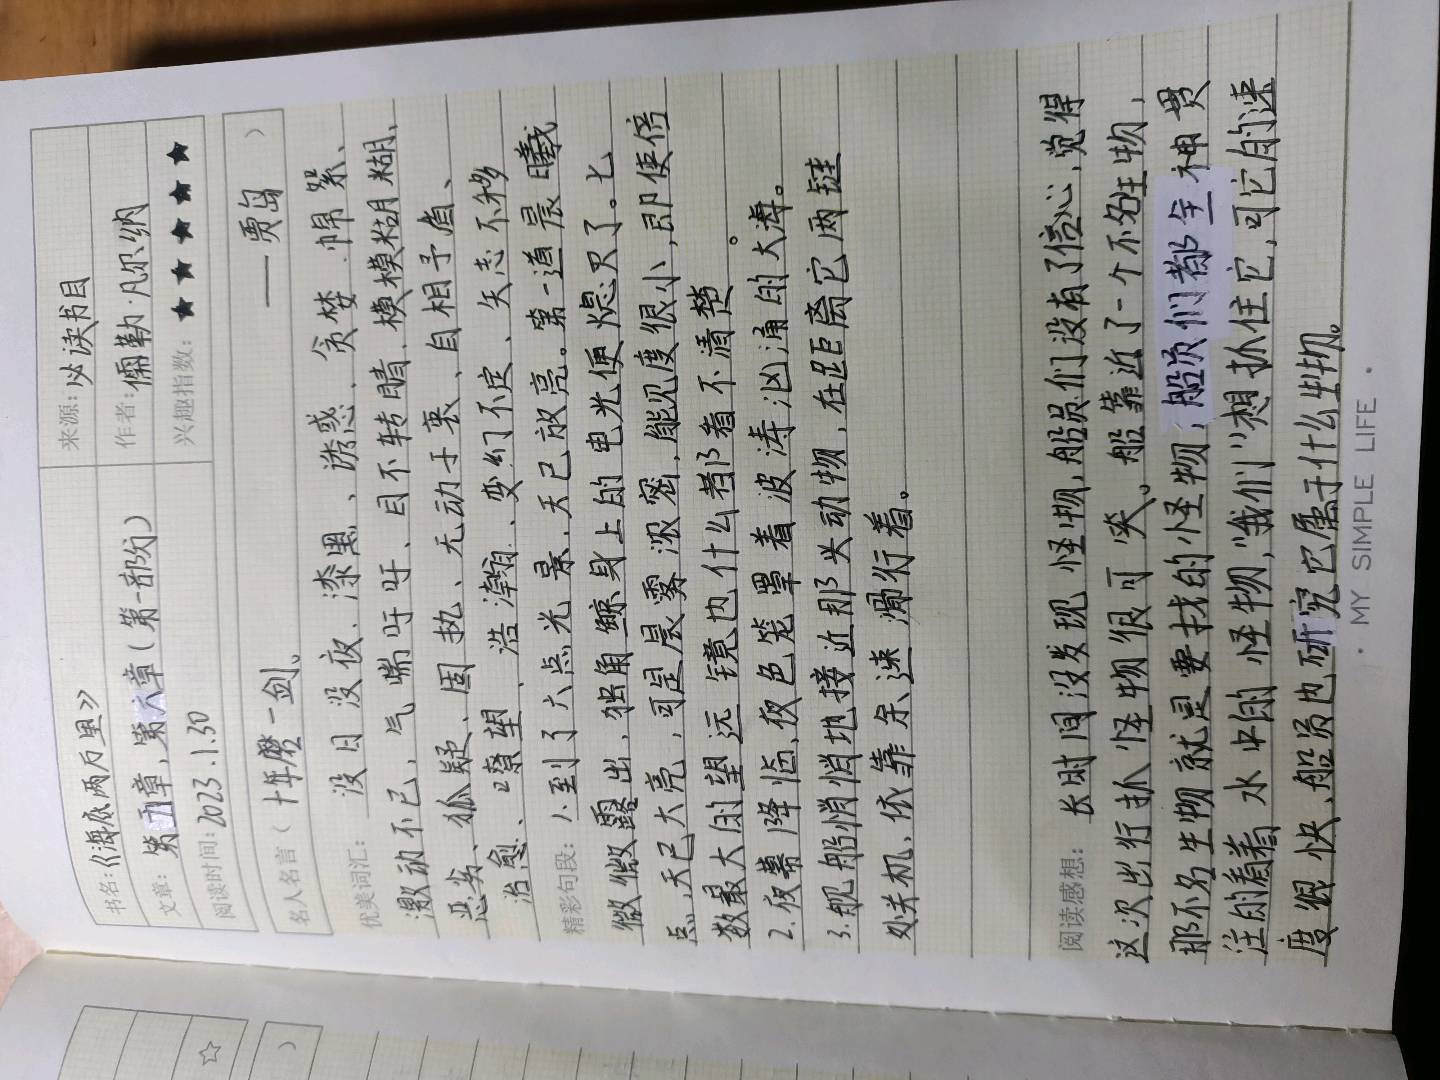 书名:《海底两万里》
来源:必读书目
文章:第五章,第六章(第一部分)
作者:儒勒·凡尔纳
阅读时间:2023.1.30
兴趣指数:★★★★★
名人名言( 十年磨一剑。 ——贾岛 )
优美词汇: 没日没夜、漆黑、诱惑、贪婪、惦念、
激动不已、气喘吁吁、目不转睛、模模糊糊、
恶劣、狐疑、固执、无动于衷、自相矛盾、
治愈、瞭望、浩瀚、变幻不定、矢志不移
精彩句段: 1.到了六点光景,天已放亮。第一道晨曦
微微露出,独角鲸身上的电光便熄灭了。七
点,天已大亮,可是晨雾浓密,能见度很小,即使倍
数最大的望远镜也什么都看不清楚。
2.夜幕降临,夜色笼罩着波涛汹涌的大海。
3.舰船悄悄地接近那头动物,在距离它两链
处关机,依靠余速滑行着。
阅读感想: 长时间没发现怪物,船员们没有了信心,觉得
这次出行扒怪物很可笑。船靠近了一个不名生物,
那不名生物就是要找的怪物,船员们都全神贯
注的看着水中的怪物,“我们”想扒住它,可它的速
度很快,船员也研究它属于什么生物。
· MY SIMPLE LIFE ·
☆
)